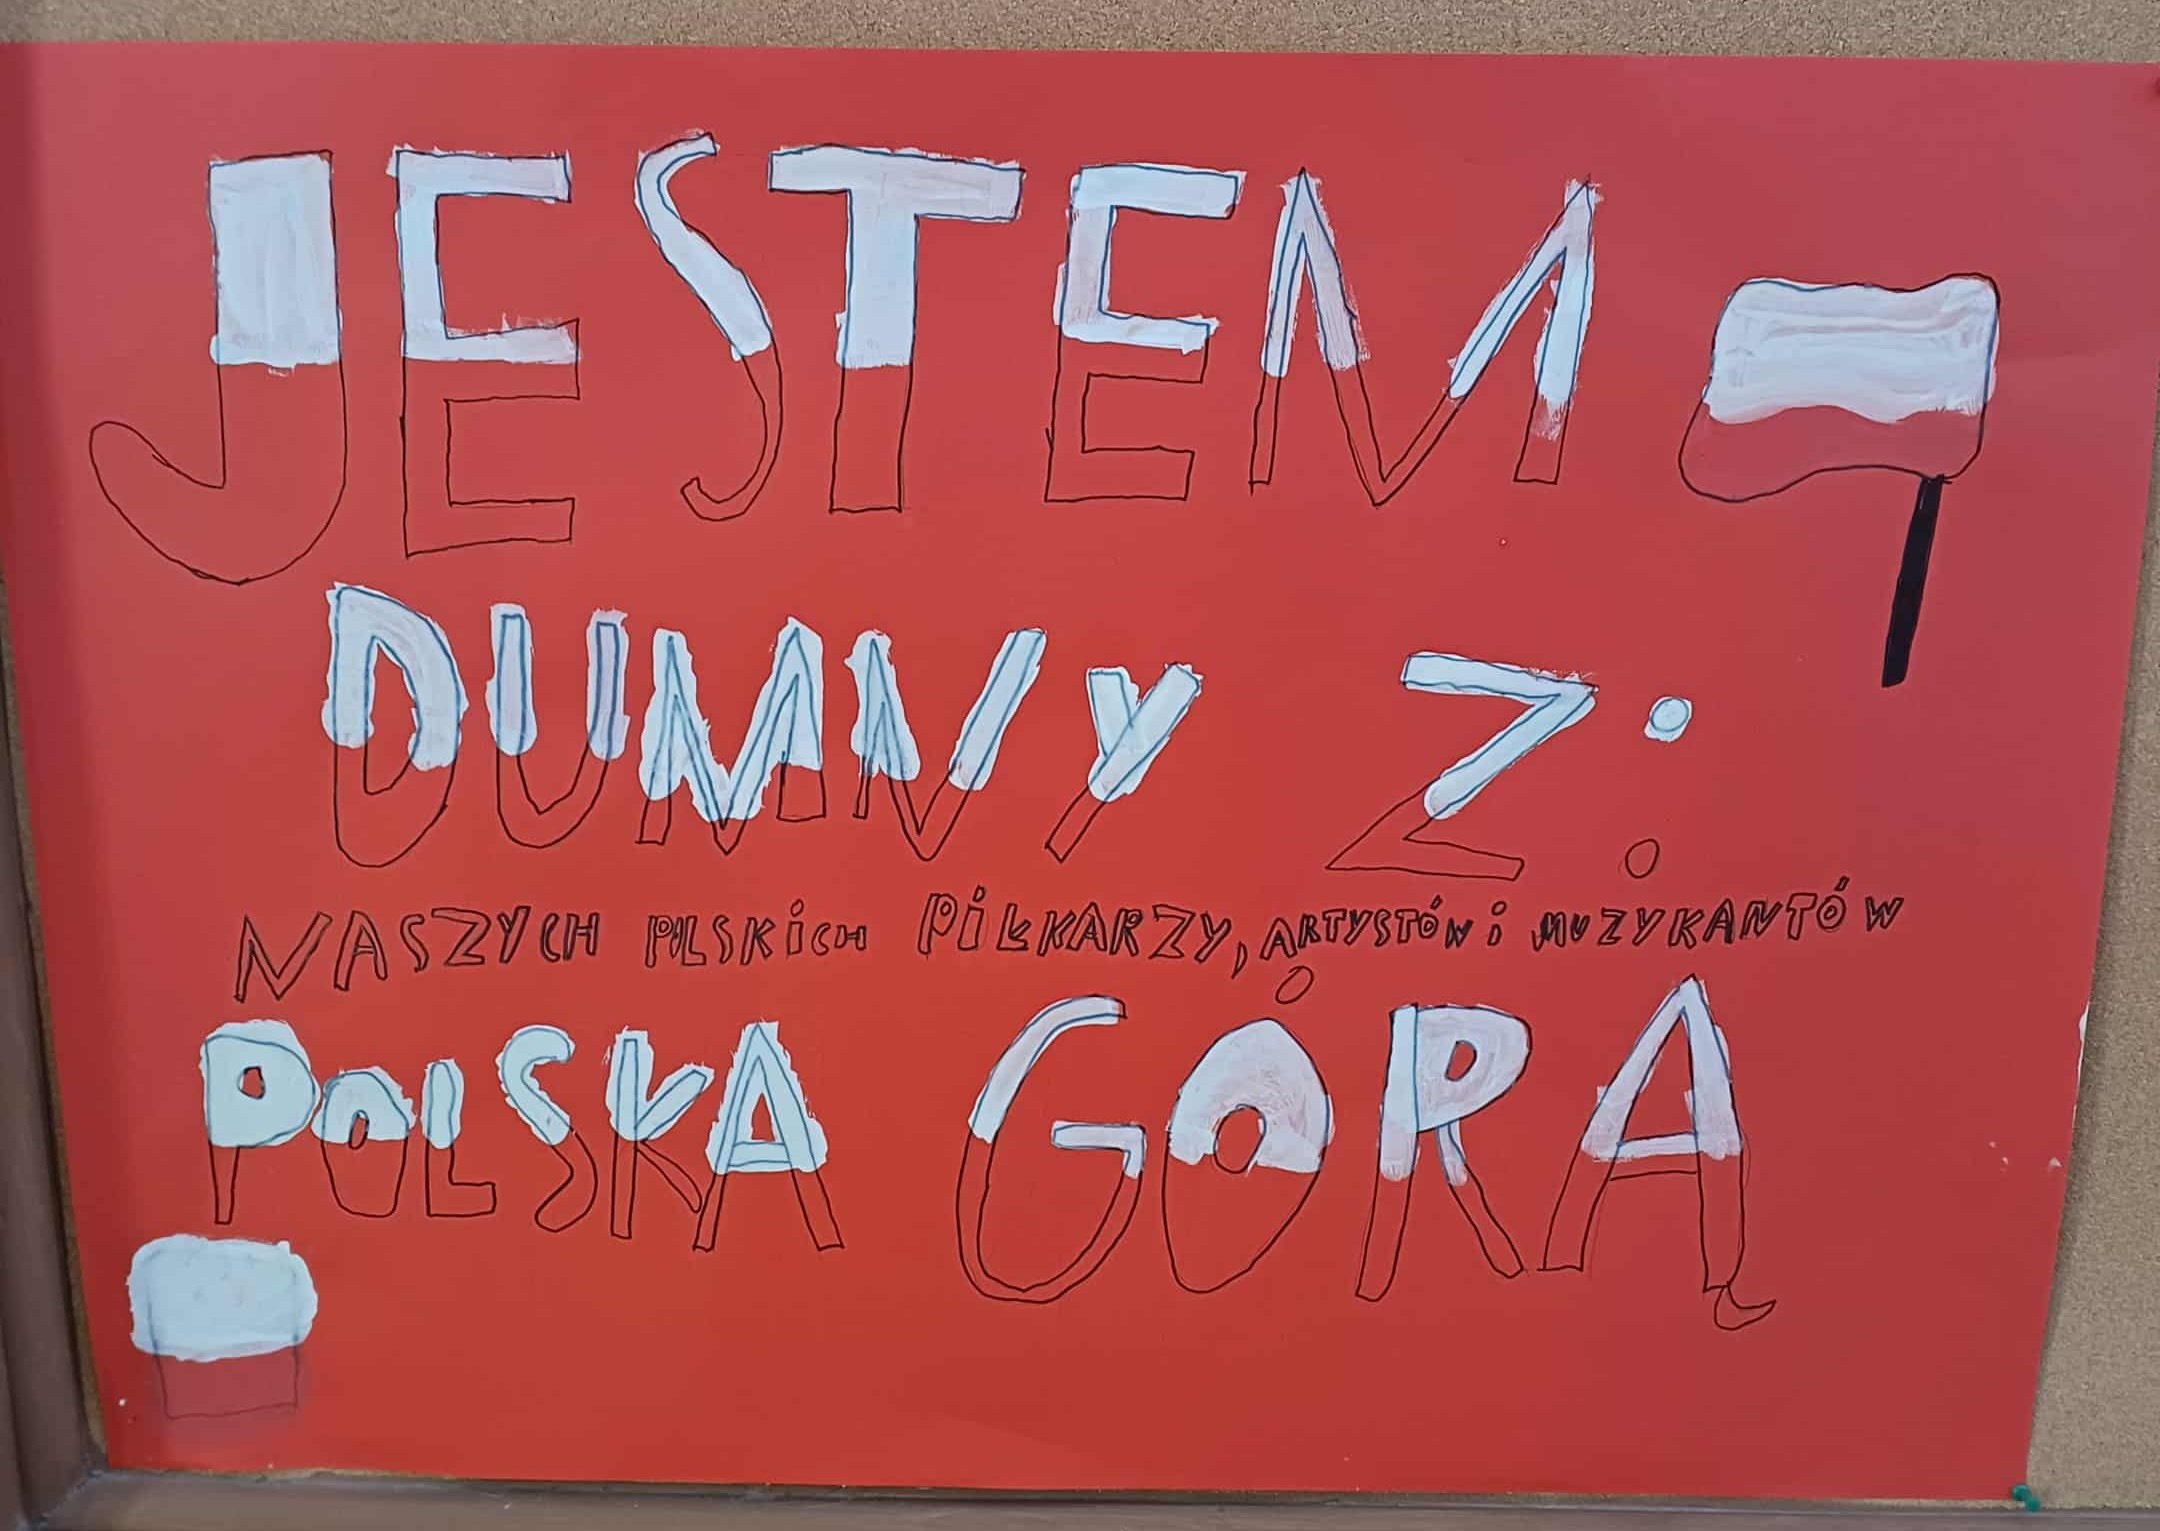 JESTEM
DUMNY Z:
NASZYCH POLSKICH PIŁKARZY, ARTYSTÓW i MUZYKANTÓW
POLSKA GÓRĄ